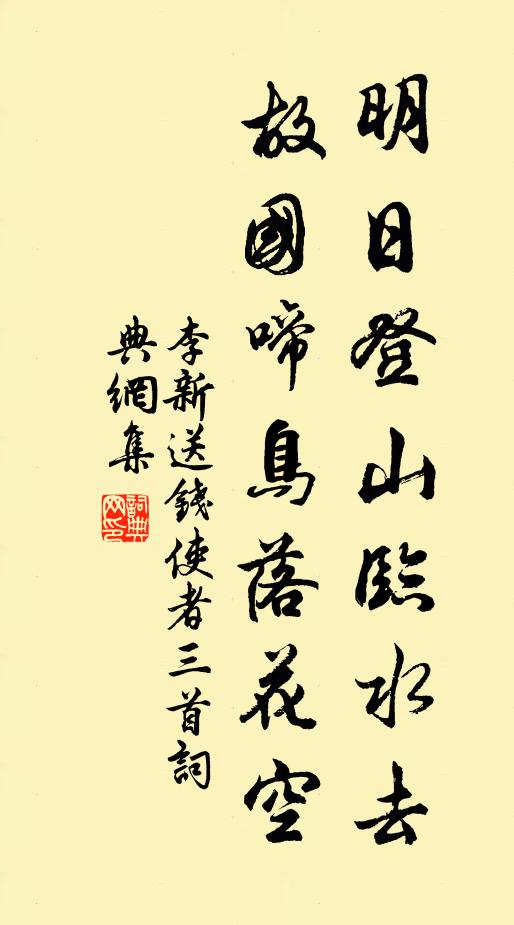 明日登山臨水去
故國啼鳥落花空
李新送錢使者三首詞
典網集
詞典
网印